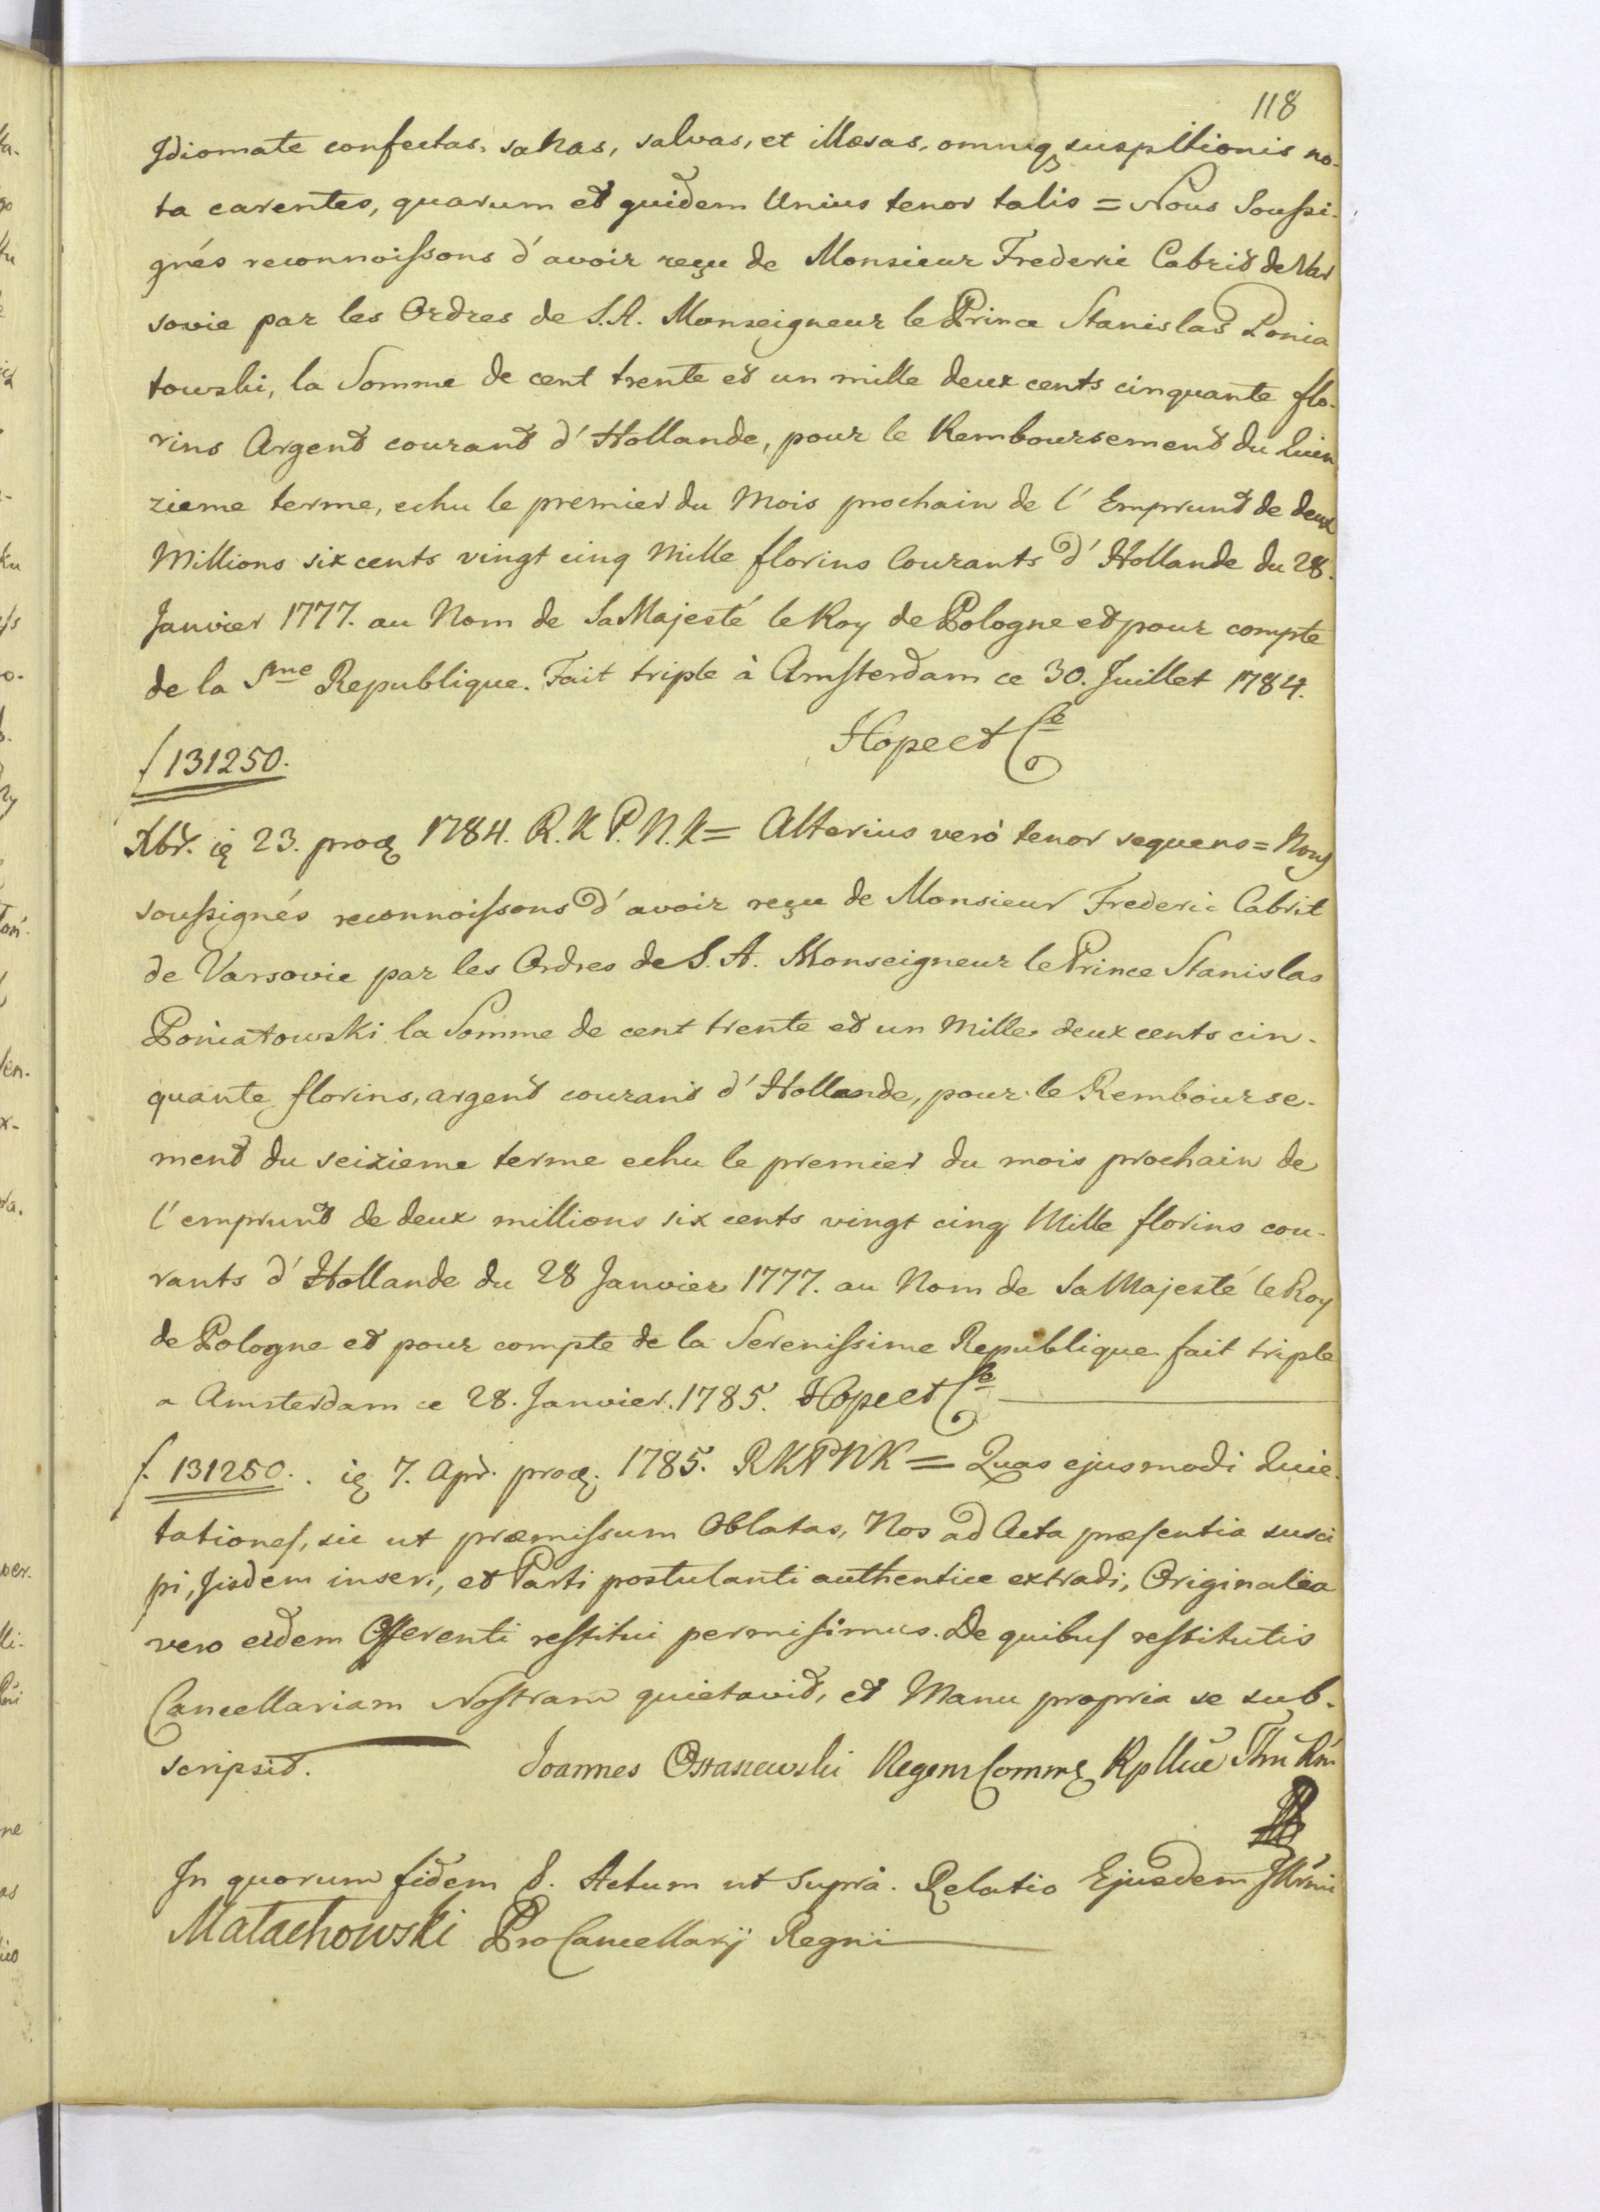 118
Idiomate confectas, sanas, salvas, et illæsas, omniq suspitionis no-
ta carentes, quarum et quidem Unius tenor talis = Nous Soussi-
gnés reconnoissons d'avoir reçu de Monsieur Frederic Cabrit de Var
sovie par les Ordres de S.A. Monseigneur le Prince Stanislas Ponia
towski, la Somme de cent trente et un mille deux cents cinquante flo-
rins Argent courant d'Hollande, pour le Remboursement du Quin
zieme terme, echu le premier du Mois prochain de l'Emprunt de deux
Millions six cents vingt cinq Mille florins Courants d'Hollande du 28.
Janvier 1777. au Nom de Sa Majesté le Roy de Pologne et pour compte
de la Sme Republique. Fait triple à Amsterdam ce 30. Juillet 1784.
Hope et Ce
f 131250.
Xbr. 23. 1784. R.K.P.N.K = Alterius verò tenor sequens = Nous
soussignés reconnoissons d'avoir reçu de Monsieur Frederic Cabrit
de Varsovie par les Ordres de S. A. Monseigneur le Prince Stanislas
Poniatowski la Somme de cent trente et un Mille deux cents cin-
quante florins, argent courant d'Hollande, pour le Rembourse-
ment du seizieme terme echu le premier du mois prochain de
l'emprunt de deux millions six cents vingt cinq Mille florins cou-
rants d'Hollande du 28 Janvier 1777. au Nom de Sa Majesté le Roy
de Pologne et pour compte de la Serenissime Republique fait triple
a Amsterdam ce 28. Janvier. 1785. Hope et Ce
f. 131250. 7. Apr. 1785. RKPNK = Quas ejusmodi Quie-
tationes, sic ut præmissum Oblatas, Nos ad Acta præsentia susci
pi, Jisdem inseri, et Parti postulanti authentice extradi, Originalia
vero eidem Offerenti restitui permisimus. De quibus restitutis
Cancellariam Nostram quietavit, et Manu propria se sub-
scripsit. Joannes Regens
In quorum fidem &. Actum ut Supra. Relatio Ejusdem Jllrmi
Małachowski ProCancellarij Regni